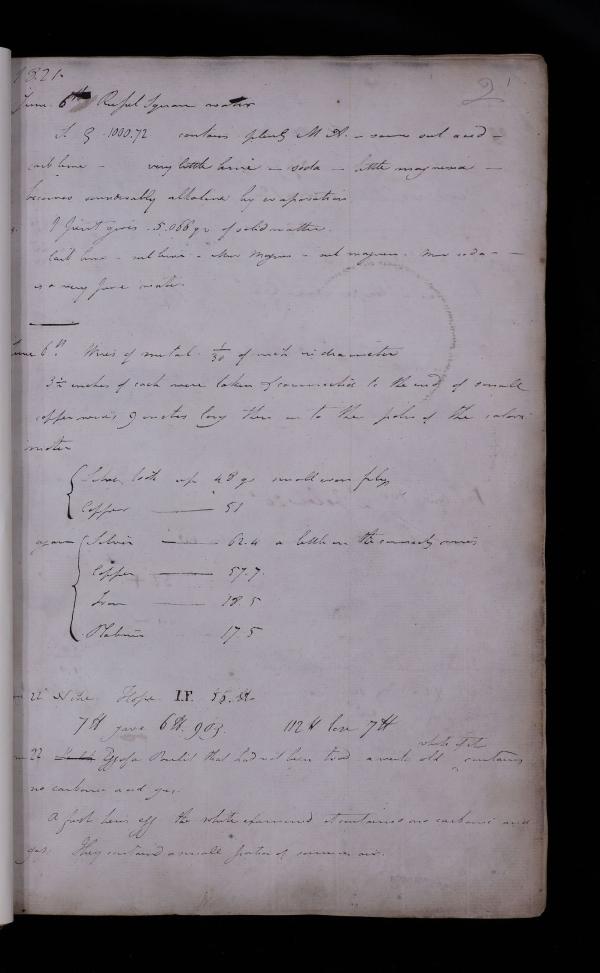 1821.
2
June 6th Russel Square water
S. G. 1000.72 contains plenty M A. - some sul acid -
carb lime - very little lime - soda - little magnesia -
becomes sensibly alkaline by evaporation
1 Pint gives 5.066 gr of solid matter.
Carb lime - sul lime - Mur Magnes - sul magnes. Mur soda -
is a very pure water.
June 6th. Wires of metal 1/30 of inch in diameter
3 1/2 inches of each were taken & connected to the end of small
copper wires 9 inches long then to the poles of the calori
motor
Silver took up 48 gr small iron filings
Copper 51
again Silver 62.4 a little on the connecting wires
Copper 57.7.
Iron 18.5
Platina 17.5
22 Hope I.P.
7 lb gave 6 lb. 9 oz. 112 lb lose 7 lb
22 Egg of a Poulet that had not been a week old white of it contains
no carbonic acid gas.
A fresh hens egg the white examined it contains no carbonic acid
gas. They contained a small portion of common air.